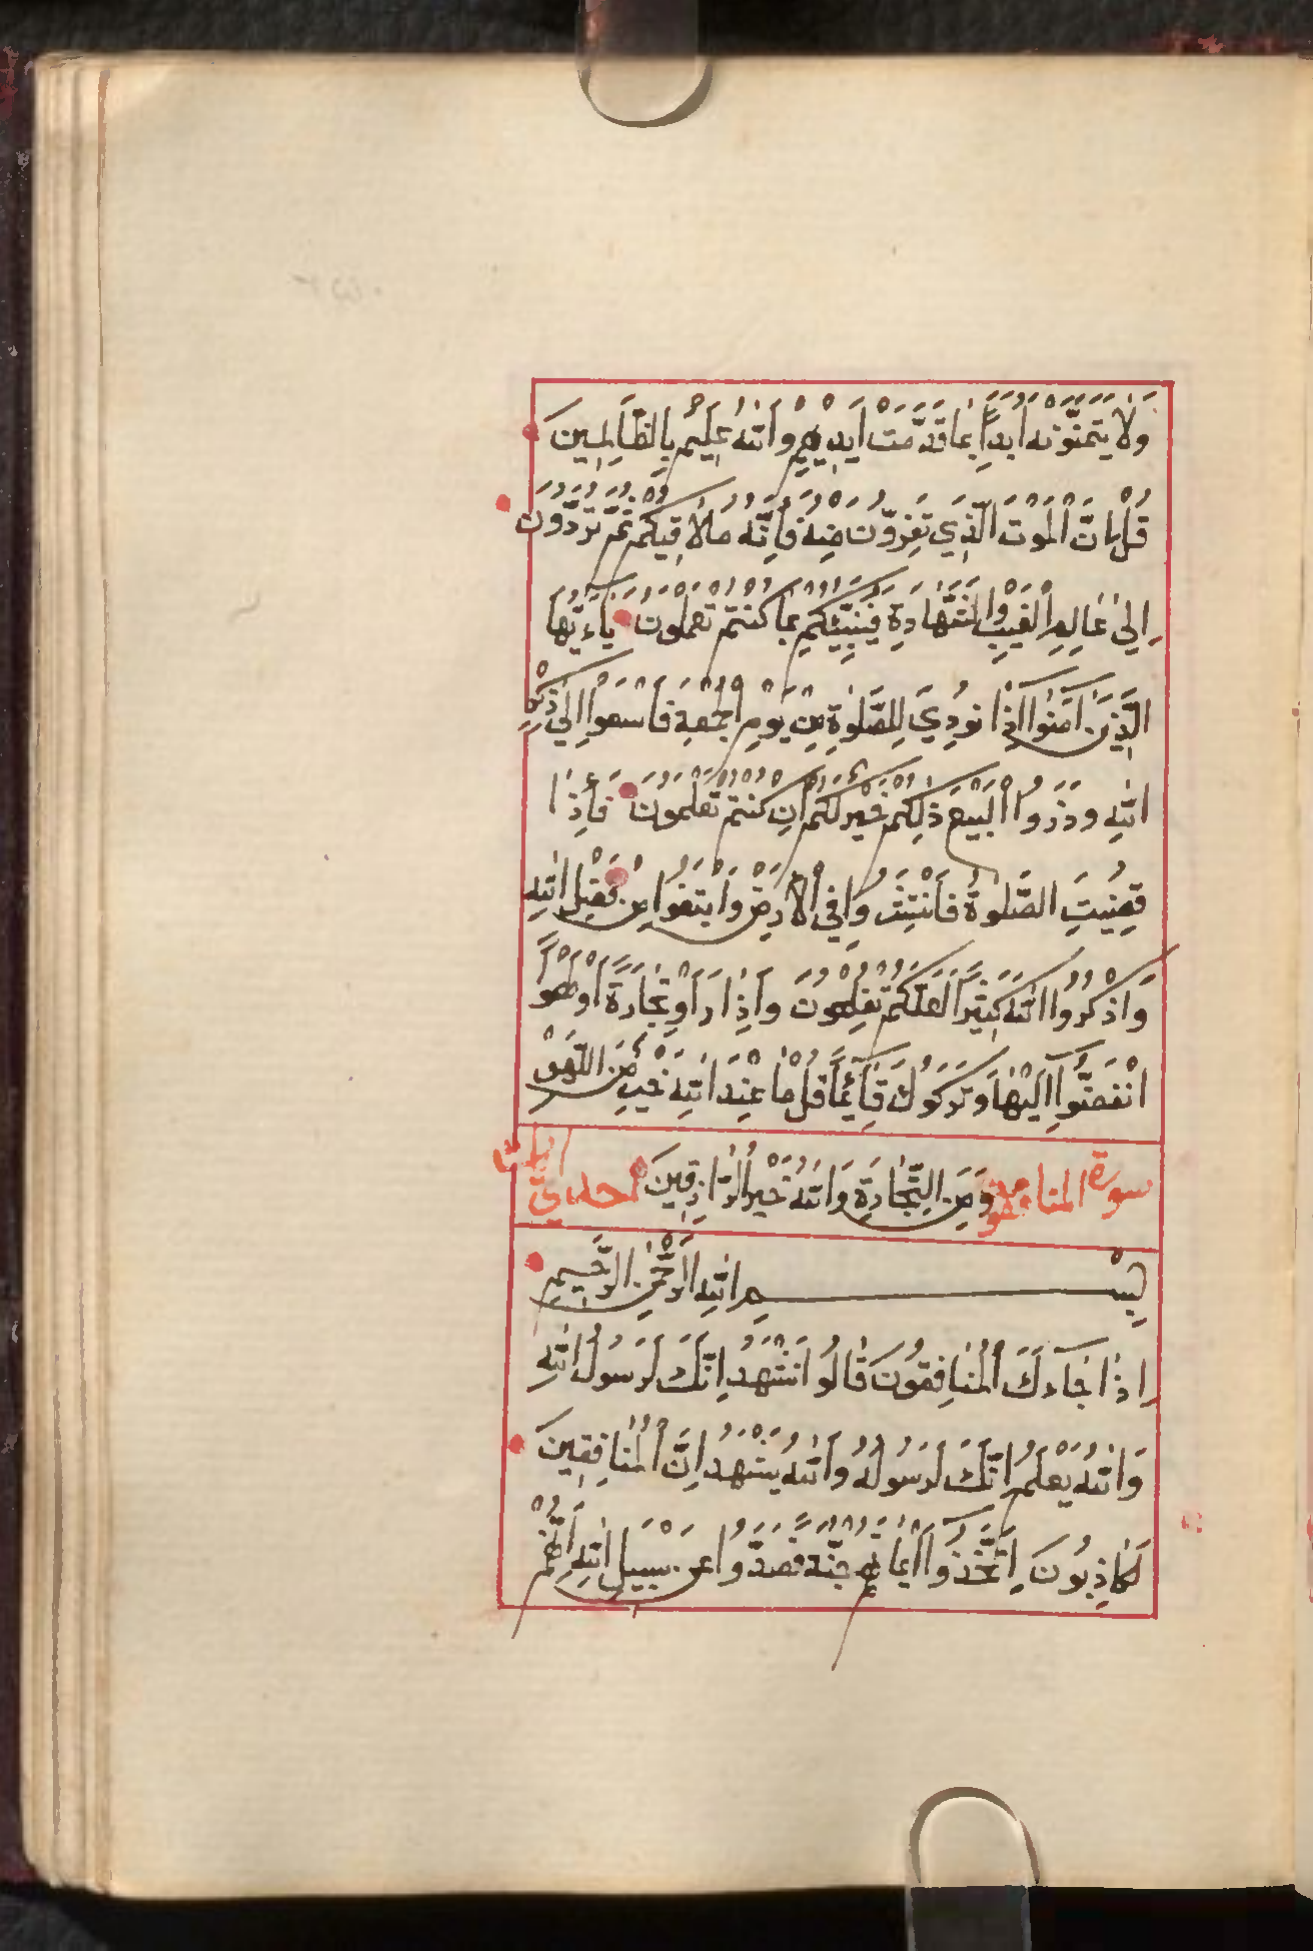 وَلَا يَتَمَنَّوْنَهُ أَبَدًا بِمَا قَدَّمَتْ أَيْدِيهِمْ وَاللَّهُ عَلِيمٌ بِالظَّالِمِينَ
قُلْ إِنَّ الْمَوْتَ الَّذِي تَفِرُّونَ مِنْهُ فَإِنَّهُ مُلَاقِيكُمْ ثُمَّ تُرَدُّونَ
إِلَىٰ عَالِمِ الْغَيْبِ وَالشَّهَادَةِ فَيُنَبِّئُكُمْ بِمَا كُنْتُمْ تَعْمَلُونَ يَاءَيُّهَا
الَّذِينَ آمَنُوا إِذَا نُودِيَ لِلصَّلَوٰةِ مِنْ يَوْمِ الْجُمُعَةِ فَاسْعَوْا إِلَىٰ ذِكْرِ
اللَّهِ وَذَرُوا الْبَيْعَ ذَٰلِكُمْ خَيْرٌ لَكُمْ إِنْ كُنْتُمْ تَعْلَمُونَ فَإِذَا
قُضِيَتِ الصَّلَوٰةُ فَانْتَشِرُوا فِي الْأَرْضِ وَابْتَغُوا مِنْ فَضْلِ اللَّهِ
وَاذْكُرُوا اللَّهَ كَثِيرًا لَعَلَّكُمْ تُفْلِحُونَ وَإِذَا رَأَوْ تِجَارَةً أَوْ لَهْوًا
انْفَضُّوا إِلَيْهَا وَتَرَكُوكَ قَائِمًا قُلْ مَا عِنْدَ اللَّهِ خَيْرٌ مِنَ اللَّهْوِ
وَمِنَ التِّجَارَةِ وَاللَّهُ خَيْرُ الرَّازِقِينَ
سورة المنافقون احدى آيات
بِسْمِ اللَّهِ الرَّحْمَٰنِ الرَّحِيمِ
إِذَا جَاءَكَ الْمُنَافِقُونَ قَالُوا نَشْهَدُ إِنَّكَ لَرَسُولُ اللَّهِ
وَاللَّهُ يَعْلَمُ إِنَّكَ لَرَسُولُهُ وَاللَّهُ يَشْهَدُ إِنَّ الْمُنَافِقِينَ
لَكَاذِبُونَ اتَّخَذُوا أَيْمَانَهُمْ جُنَّةً فَصَدُّوا عَنْ سَبِيلِ اللَّهِ إِنَّهُمْ